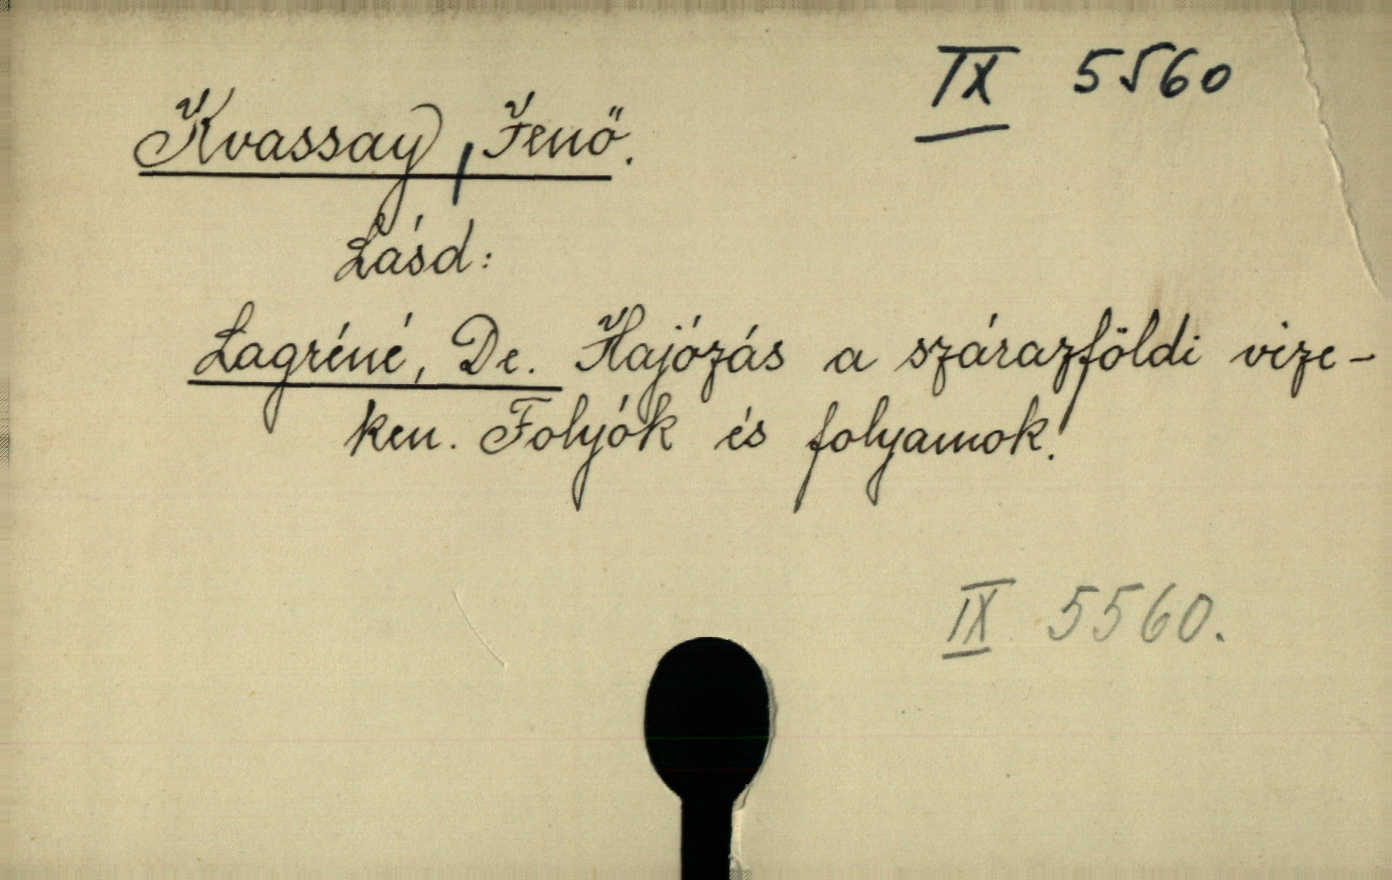 IX 5560
Kvassay, Jenő.
Lásd:
Lagréné, De. Hajózás a szárazföldi vize-
ken. Folyók és folyamok.
IX 5560.